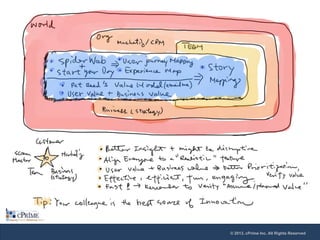 World
Org
Marketing / CPM
TEAM
* Spider Web * User Journey Mapping
* Start your Day * Experience Map
* Story
Mapping
* Pet Reed's Value
* User value + Business value
Business (strategy)
Customer
Scrum
Master
PO
Marketing
Team
Business
(strategy)
Better Insight + might be disruptive
Align Everyone to a "Realistic" feature
User value + Business value → better Prioritization,
Verify value
Effective, efficient, fun, engaging
Fast! → Remember to Verify "Assume/planned value"
Tip: Your colleague is the best source of Innovation
cPRIME
© 2013, cPrime Inc. All Rights Reserved